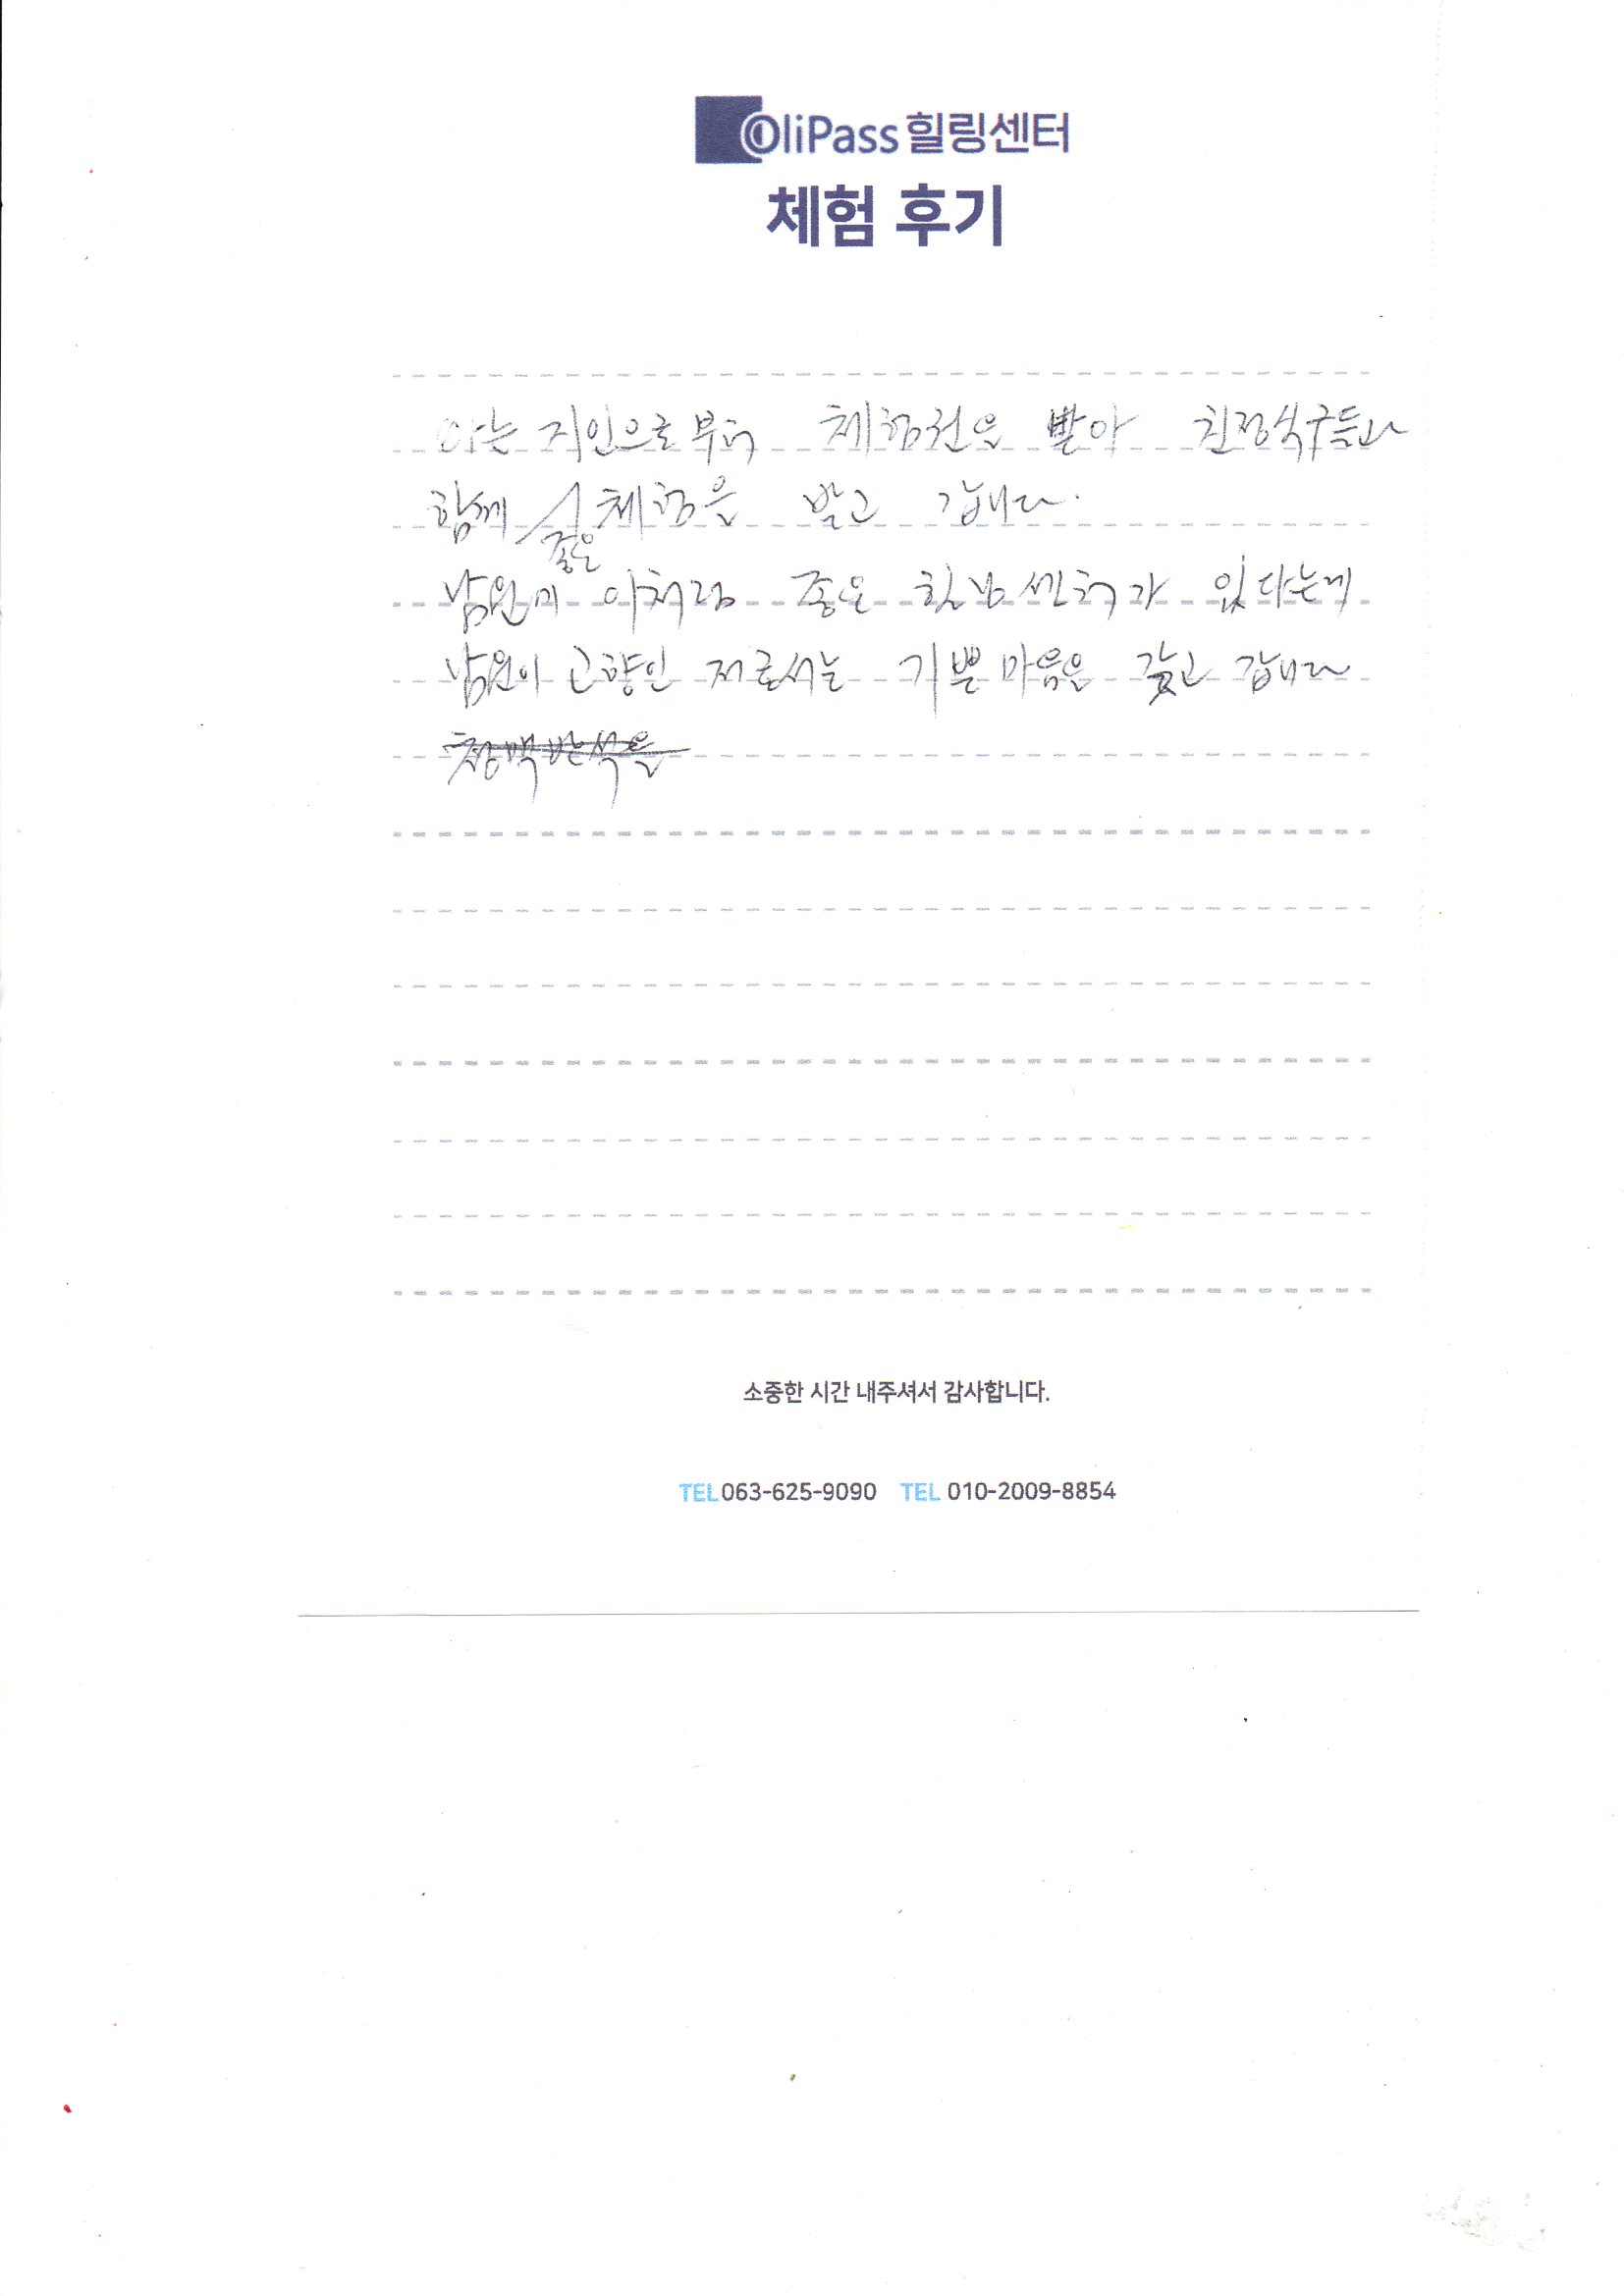 OliPass 힐링센터
체험 후기
아는 지인으로부터 체험권을 받아 친정식구들과
함께 좋은 체험을 받고 갑니다.
남원에 이처럼 좋은 힐링센터가 있다는게
남원이 고향인 저로서는 기쁜 마음을 갖고 갑니다
소중한 시간 내주셔서 감사합니다.
TEL 063-625-9090 TEL 010-2009-8854